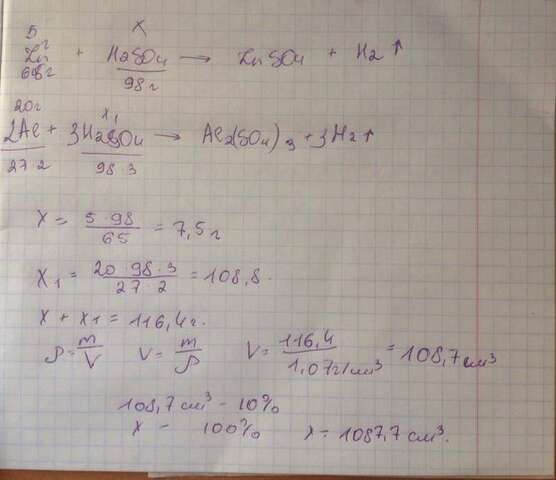 5г x
Zn + H2SO4 → ZnSO4 + H2↑
65г 98г
20г x1
2Al + 3H2SO4 → Al2(SO4)3 + 3H2↑
27·2 98·3
x = 5·98/65 = 7,5г
x1 = 20·98·3/27·2 = 108,8.
x + x1 = 116,4г.
ρ = m/V V = m/ρ V = 116,4/1,07г/см³ = 108,7см³
108,7см³ - 10%
x - 100% x = 1087,7 см³.